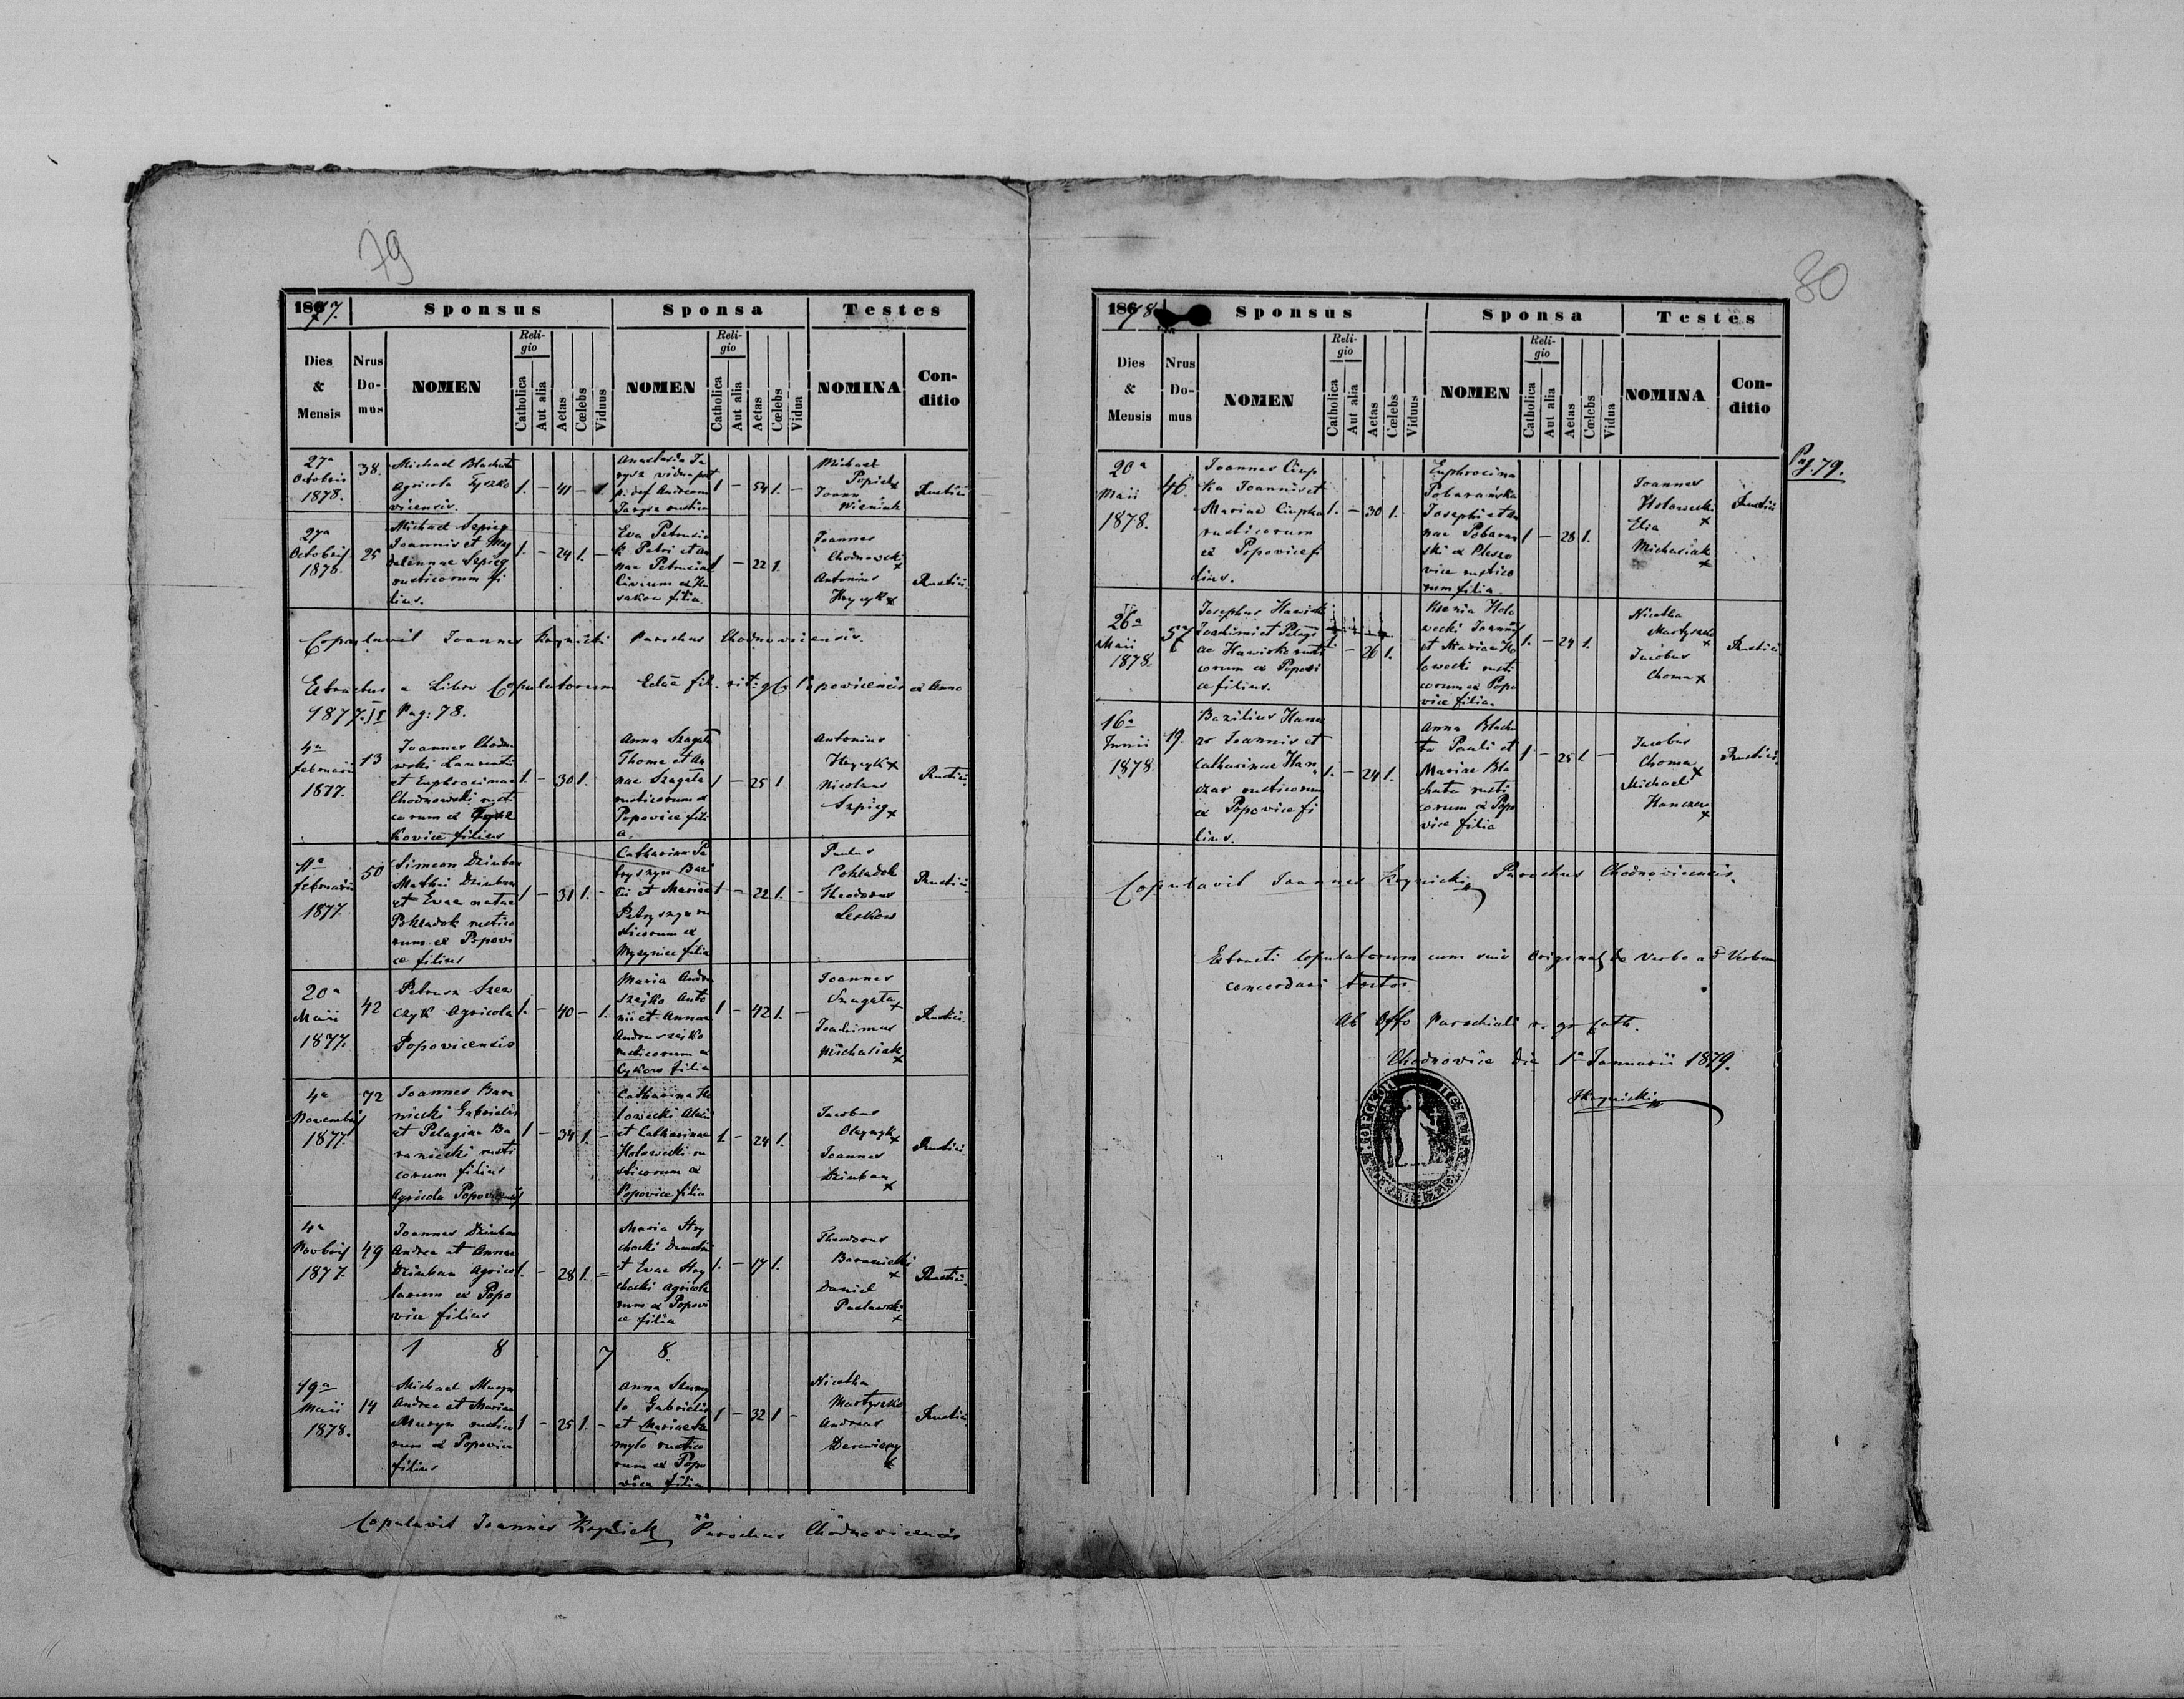 79
1877.
Sponsus
Sponsa
Testes
Dies & Mensis
Nrus Domus
NOMEN
Religio
Catholica
Aut alia
Aetas
Cœlebs
Viduus
NOMEN
Religio
Catholica
Aut alia
Aetas
Cœlebs
Vidua
NOMINA
Conditio
27a
Octobris
1878.
38.
Michael Blachuta
Agricola Tyszko
vicensis.
1. – 41 – 1.
Anastasia Ta
rysa vidua post
p. def. Andream
Tarysa rustica
1 – 54 1. –
Michael
Popiel x
Joann
Wisniak
Rustici
27a
Octobris
1878.
25
Michael Szpieg
Joannis et Mag
dalennae Szpieg
rusticorum fi
lius.
1. – 24 1. –
Eva Petrusia
k Petri et An
nae Petrusiak
filia
1 – 22 1.
Joannes
Chodnowski x
Antonius
Hrycyk x
Rustici
Copulavit Joannes Krynicki Parochus Chodnovicensis.
Extractus e Libro Copulatorum Popovicensis ex Anno
1877. Pag: 78.
4a
februarii
1877.
13
Joannes Chodno
wski Laurentii
et Euphrosinae
Chodnowski rusti
corum ex Tysz
kovice filius
1. – 30 1.
Anna Szagata
Thome et An
nae Szagata
rusticorum ex
Popovice fili
a.
1 – 25 1
Antonius
Hrycyk x
Nicolaus
Szpieg x
Rustici
11a
februarii
1877.
50
Simeon Dziuban
Mathei Dziuban
et Evae natae
Pokladok rustico
rum ex Popovi
ce filius
1 – 31 1. –
Catharina Pe
tryszyn Basi
lii et Mariae
Petryszyn ru
sticorum ex
filia
1 – 22 1. –
Paulus
Pokladok
Theodorus
Leskow
Rustici
20a
Maii
1877.
42
Petrus Szew
czyk Agricola
Popovicensis
1. – 40 – 1.
Maria Andru
szejko Anto
nii et Annae
Andruszejko
rusticorum ex
Cykow filia
1 – 42 1. –
Joannes
Szagata x
Joachimus
Michasiak x
Rustici.
4a
Novembris
1877.
72
Joannes Bara
niecki Gabrielis
et Pelagiae Ba
raniecki rusti
corum filius
Agricola Popovicensis
1 – 34 1. –
Catharina Ho
lowecki Alexii
et Catharinae
Holowecki ru
sticorum ex
Popovice filia
1. – 24 1.
Jacobus
Olejnyk x
Joannes
Dziuban x
Rustici
4a
Novbris
1877.
49
Joannes Dziuban
Andrea et Annae
Dziuban Agrico
larum ex Popo
vice filius
1. – 28 1. –
Maria Stry
chocki Demetrii
et Evae Stry
chocki Agricola
rum ex Popovi
ce filia
1. – 17 1.
Theodorus
Baraniecki x
Daniel
Paslawski x
Rustici.
1 8 7 8.
19a
Maii
1878.
14
Michael Muryn
Andrea et Mariae
Muryn rustico
rum ex Popovice
filius
1 – 25 1. –
Anna Szmy
lo Gabrielis
et Mariae Sz
mylo rustico
rum ex Popo
vice filia
1 – 32 1 –
Nicetha
Martyszko
Andreas
Derewiany x
Rustici
Copulavit Joannes Krynicki Parochus Chodnovicensis
80
1878
Sponsus
Sponsa
Testes
Dies & Mensis
Nrus Domus
NOMEN
Religio
Catholica
Aut alia
Aetas
Cœlebs
Viduus
NOMEN
Religio
Catholica
Aut alia
Aetas
Cœlebs
Vidua
NOMINA
Conditio
Pag. 79.
20a
Maii
1878.
46.
Joannes Ciup
ka Joannis et
Mariae Ciupka
rusticorum
ex Popovice fi
lius.
1. – 30 1.
Euphrosina
Pobarańska
Josephi et An
nae Pobaran
ski ex Pleszo
vice rustico
rum filia
1 – 28 1.
Joannes
Holowecki x
Elia
Michasiak x
Rustici
26a
Maii
1878.
57
Josephus Hawisko
Joachimi et Pelagi
ae Hawisko rusti
corum ex Popovi
ce filius.
1 – 26 1.
Ksenia Holo
wecki Joannis
et Mariae Ho
lowecki rusti
corum ex Popo
vice filia.
1. – 24 1.
Nicetha
Martyszko x
Jacobus
Choma x
Rustici
16a
Junii
1878.
19.
Bazilius Hanc
ar Joannis et
Catharinae Han
czar rusticorum
ex Popovice fi
lius.
1. – 24 1.
Anna Blachu
ta Pauli et
Mariae Bla
chuta rusti
corum ex Popo
vice filia
1 – 25 1. –
Jacobus
Choma x
Michael
Hanczar x
Rustici.
Copulavit Joannes Krynicki Parochus Chodnovicensis.
Extracti Copulatorum cum suis Originali de Verbo ad Verbum
concordari testor.
Ab Offo Parochiali r. gr. cath.
Chodnovice die 1a Januarii 1879.
JKrynicki